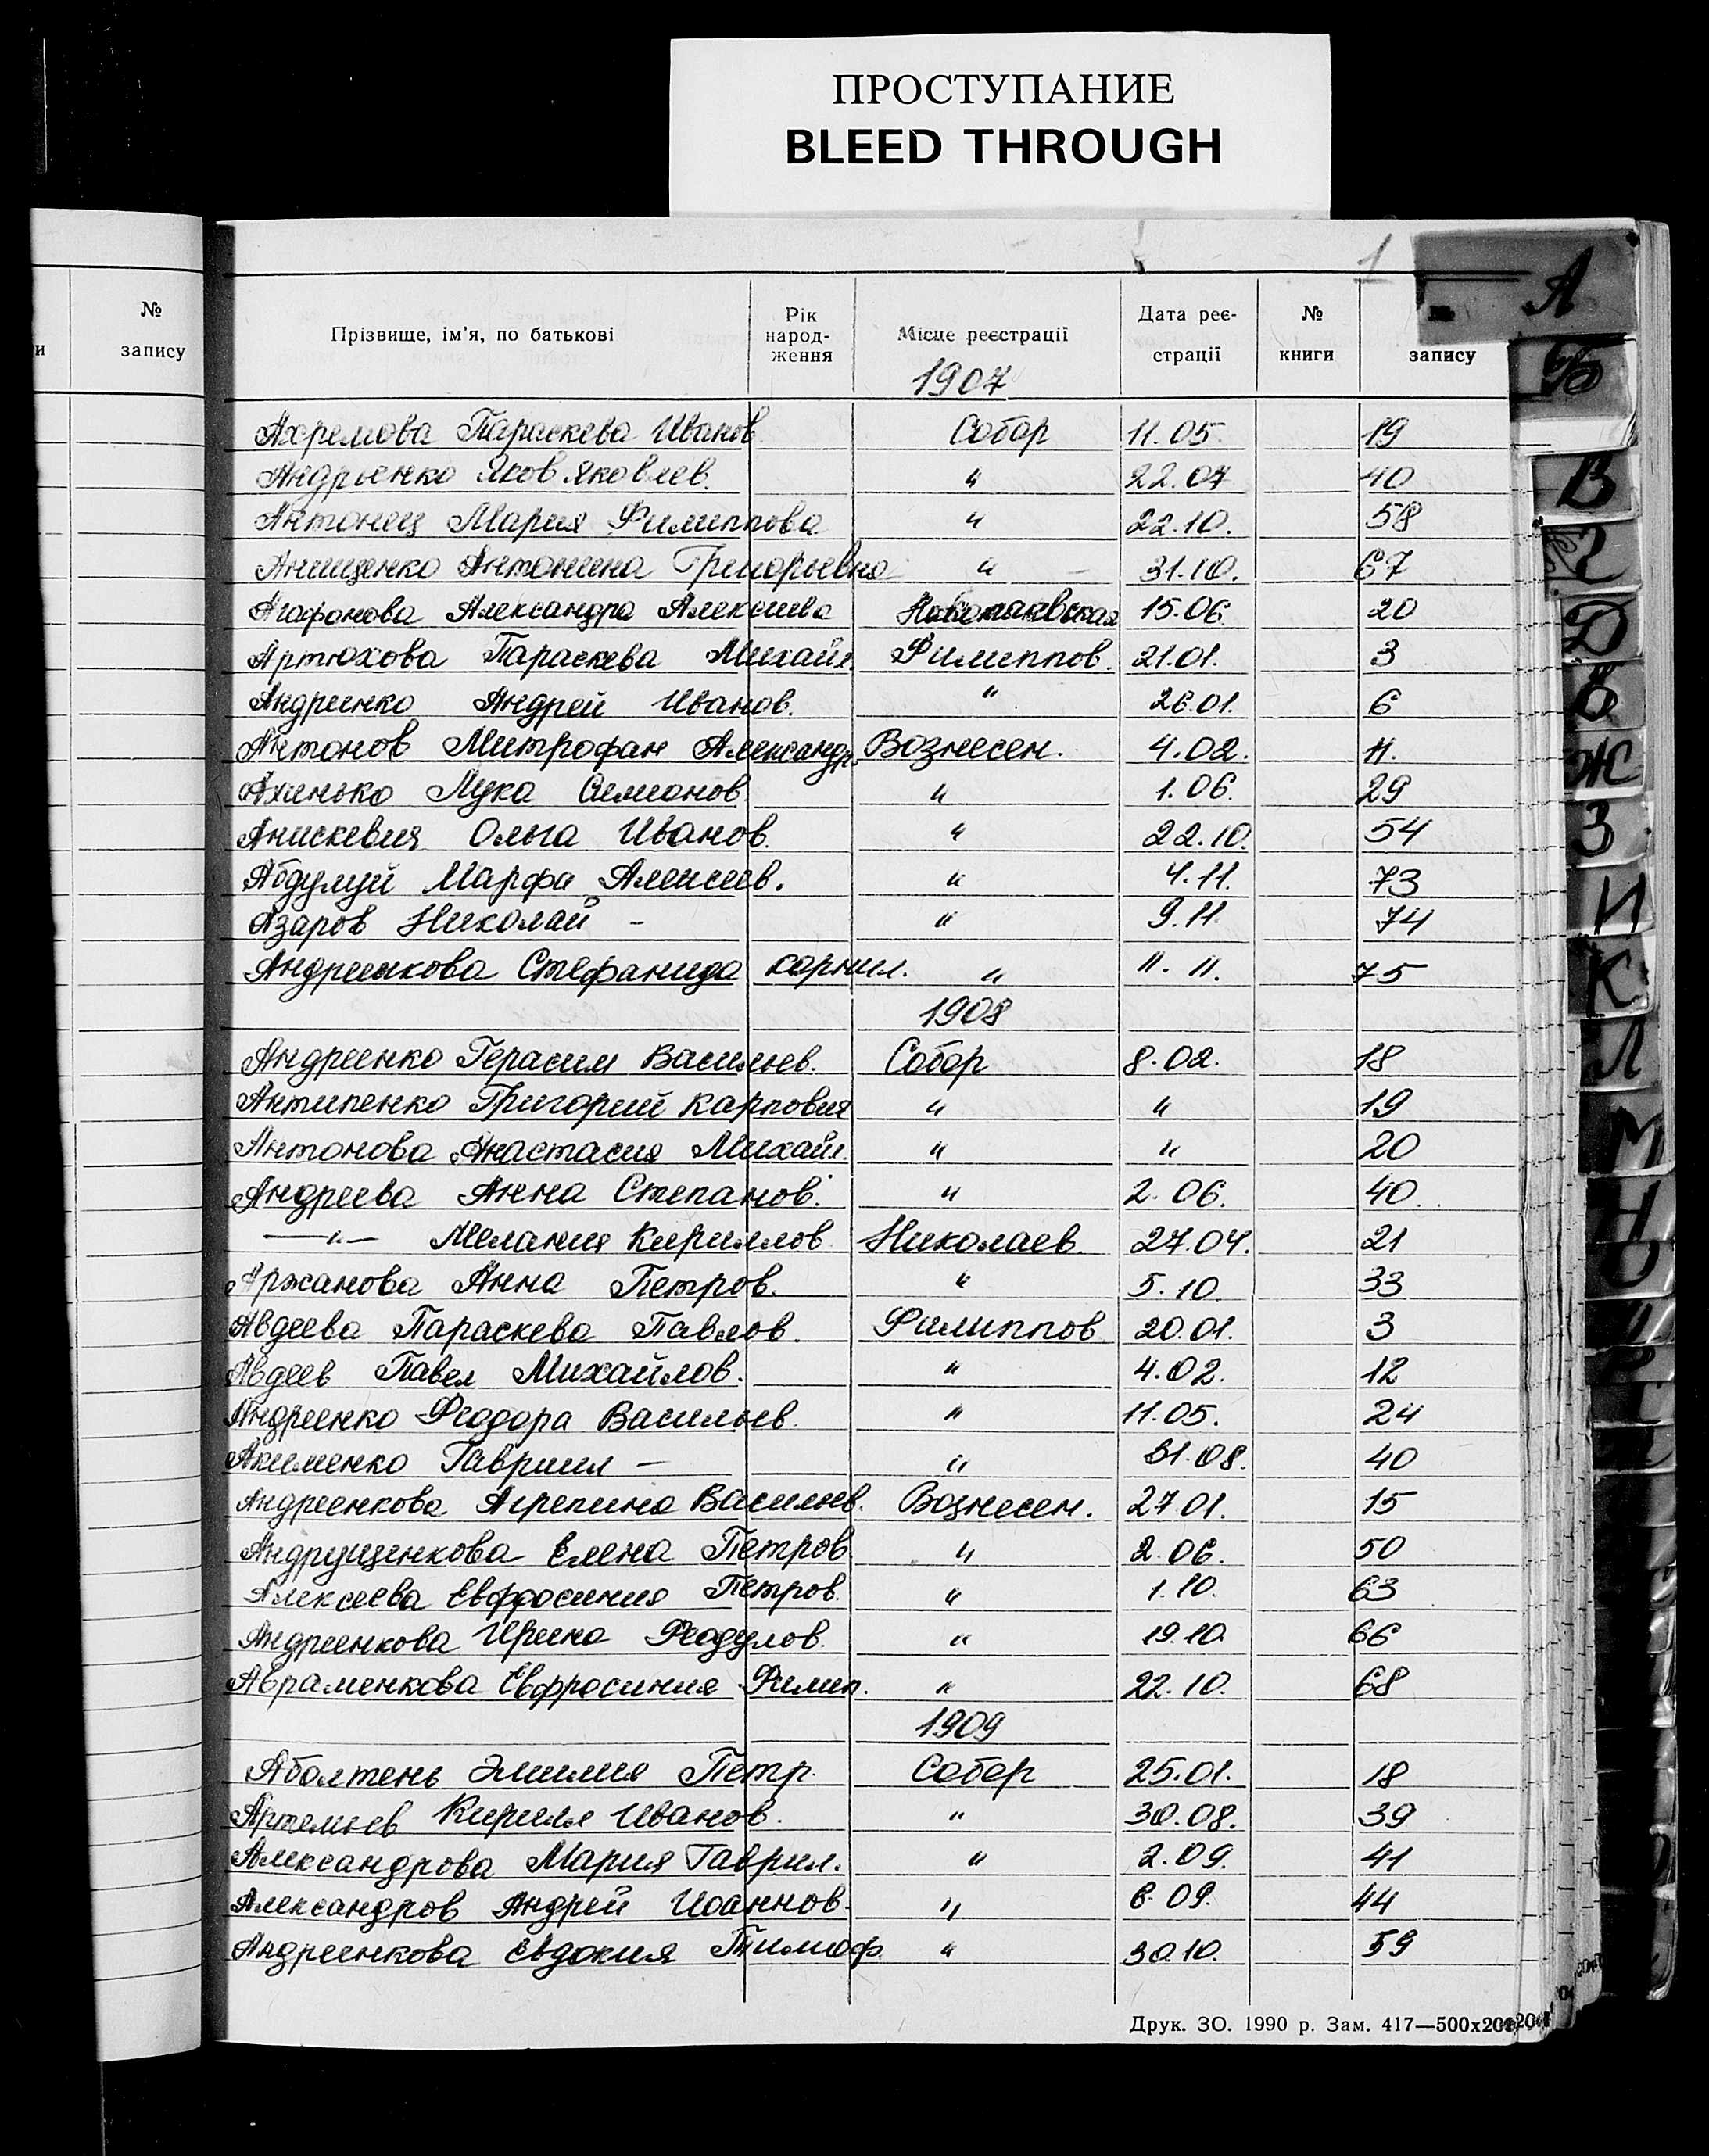 ПРОСТУПАНИЕ
BLEED THROUGH
1
№ запису
Прізвище, ім'я, по батькові Рік народ-ження Місце реєстрації Дата реє-страції № книги запису
1907
Ахремова Параскева Иванов Собор 11.05. 19
Андрыенко Яков Яковлев. " 22.07 40
Антонец Мария Филиппова " 22.10. 58
Анищенко Антонина Григорьевна " 31.10. 67
Агафонова Александра Алексеева 15.06. 20
Артюхова Параскева Михайл. Филиппов. 21.01. 3
Андреенко Андрей Иванов. " 26.01. 6
Антонов Митрофан Александр. Вознесен. 4.02. 11.
Ахинько Лука Симонов. " 1.06. 29
Анискевич Ольга Иванов. " 22.10. 54
Абдулуй Марфа Алексеев. " 4.11. 73
Азаров Николай – " 9.11. 74
Андреенкова Стефанида Карнил. " 11.11. 75
1908
Андреенко Герасим Васильев. Собор 8.02. 18
Антипенко Григорий Карпович " " 19
Антонова Анастасия Михайл. " " 20
Андреева Анна Степанов. " 2.06. 40.
—"— Мелания Кириллов. Николаев. 27.04. 21
Аржанова Анна Петров. " 5.10. 33
Авдеева Параскева Павлов. Филиппов. 20.01. 3
Авдеев Павел Михайлов. " 4.02. 12
Андреенко Феодора Васильев. " 11.05. 24
Акименко Гавриил – " 31.08. 40
Андреенкова Агрепина Васильев. Вознесен. 27.01. 15
Андрущенкова Елена Петров " 2.06. 50
Алексеева Евфросиния Петров. " 1.10. 63
Андреенкова Ирина Феодулов. " 19.10. 66
Авраменкова Евфросиния Филип. " 22.10. 68
1909
Аболтень Эмилия Петр. Собор 25.01. 18
Артемьев Кирилл Иванов. " 30.08. 39
Александрова Мария Гаврил. " 2.09. 41
Александров Андрей Иоаннов. " 6.09. 44
Андреенкова Евдокия Тимоф. " 30.10. 59
Друк. ЗО. 1990 р. Зам. 417—500х200
А
Б
В
Г
Д
Ё
Ж
З
И
К
Л
М
Н
О